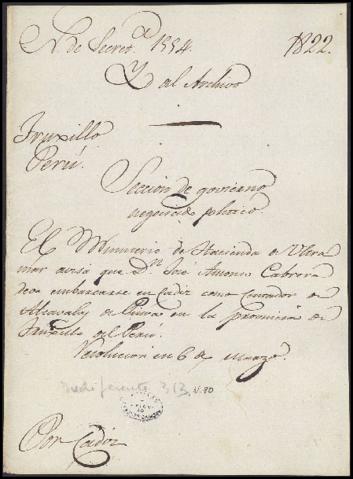 N. de Secret.ª 1554. 1822.
Y al Archivo
Truxillo
Perú.
Seccion de govierno
negociado politico.
El Ministerio de Hacienda de Ultra
mar avisa que D.n José Antonio Cabrera
deve embarcarse en Cadiz como Contador de
Alcavalas de Piura en la provincia de
Truxillo del Perú.
Resolucion en 6 de Marzo.
Indiferente 313, N. 80
Por Cadiz